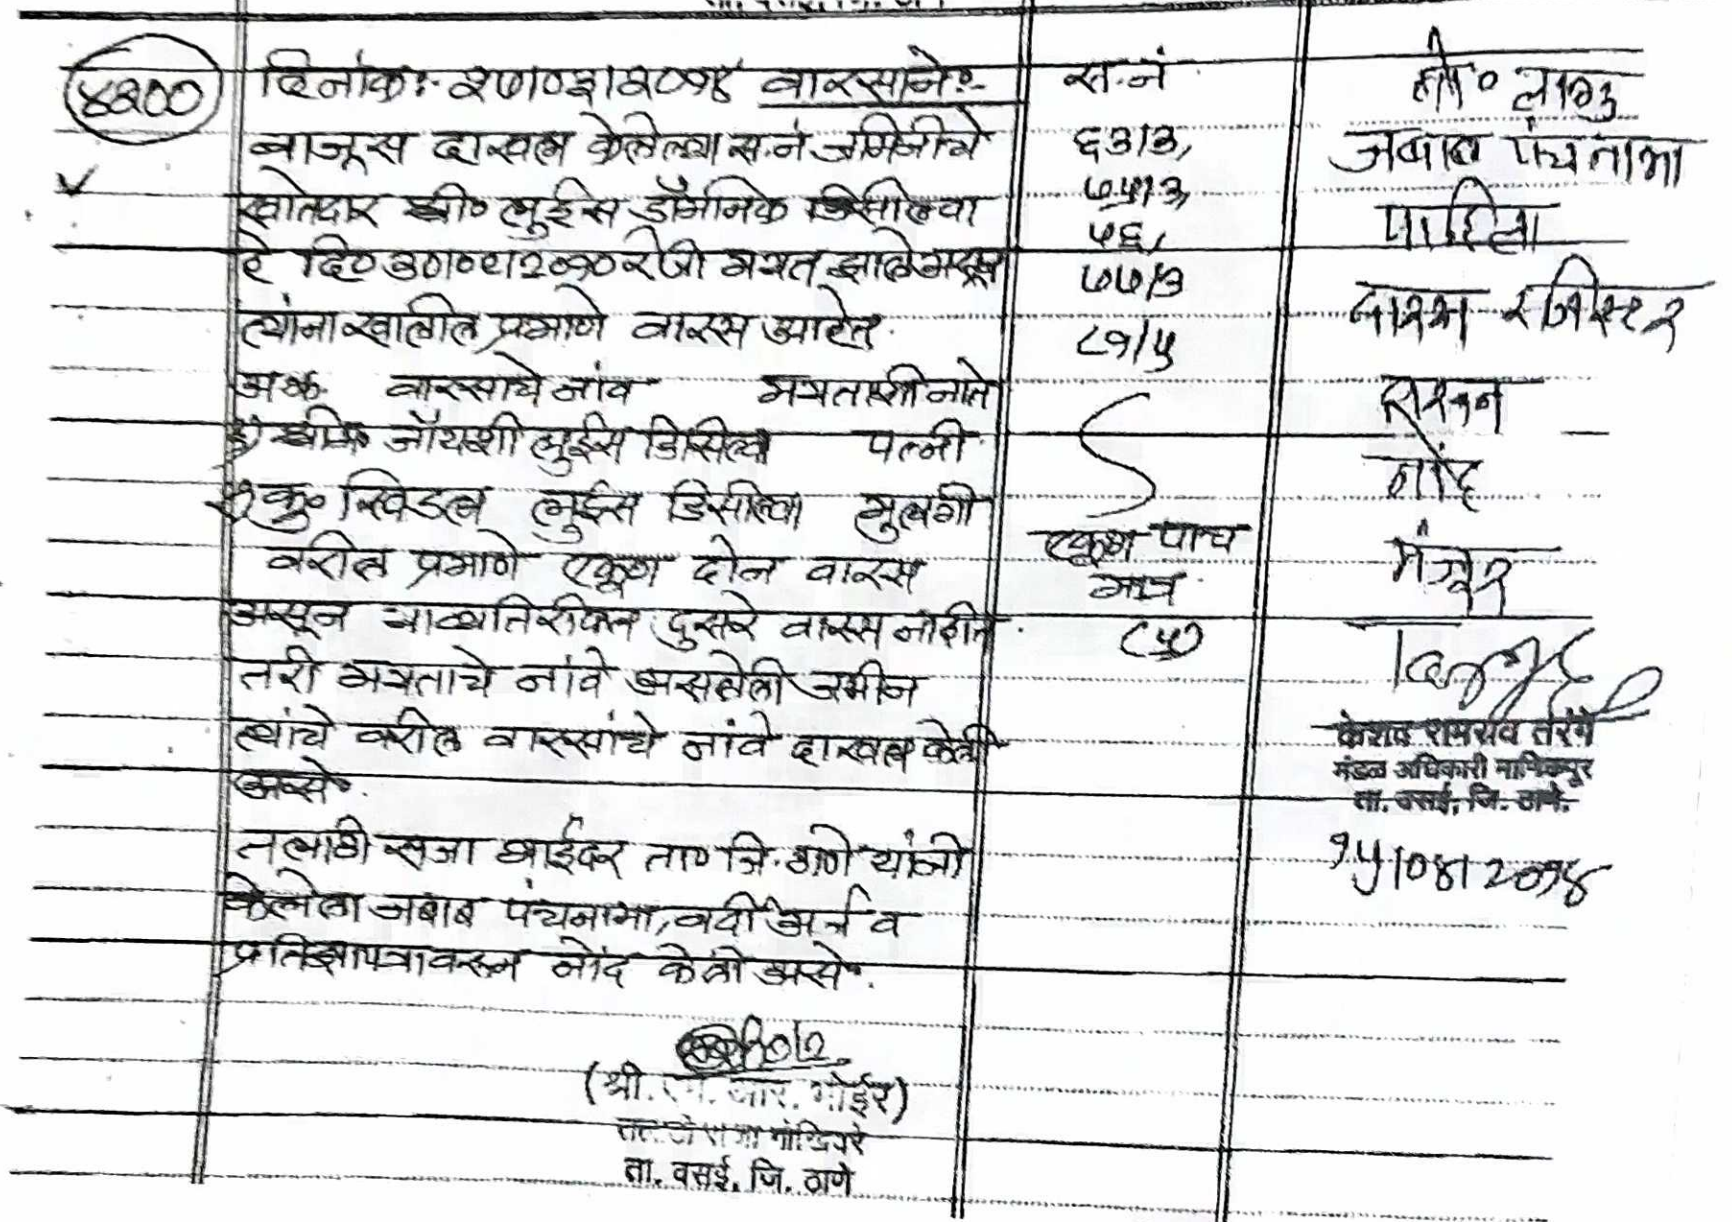 ४२००
दिनांक:- २७।०३।२०१४ वारसाने:-
बाजूस दाखल केलेल्या स.नं. जमिनीचे
खातेदार श्री० लुईस डॉमनिक डिसील्वा
हे दि० ३०।०९।२०१० रोजी मयत झाले असून
त्यांना खालील प्रमाणे वारस आहेत.
अ.क्र. वारसाचे नांव मयताशी नाते
१) जॉयशी लुईस डिसिल्वा पत्नी
२) कु० लुईस डिसील्वा मुलगी
वरील प्रमाणे एकूण दोन वारस
असून याव्यतिरीक्त दुसरे वारस नाहीत.
तरी मयताचे नांवे असलेली जमीन
त्यांचे वरील वारसांचे नांवे दाखल केली
असे.
तलाठी सजा भाईंदर ता० जि. ठाणे यांनी
केलेला जबाब पंचनामा, वर्दी अर्ज व
प्रतिज्ञापत्रावरून नोंद केली असे.
(श्री. एम. आर. भोईर)
ता. वसई, जि. ठाणे
स.नं.
६३/३,
७५/३,
७६,
७७/३
८१/५
एकूण पाच
मात्र
नो० लागु
जबाब पंचनामा
पाहिला
वारस रजिस्टर
नोंद
मंजूर
केशव रामराव तरंगे
मंडळ अधिकारी माणिकपूर
ता. वसई, जि. ठाणे.
१५/०४/२०१४